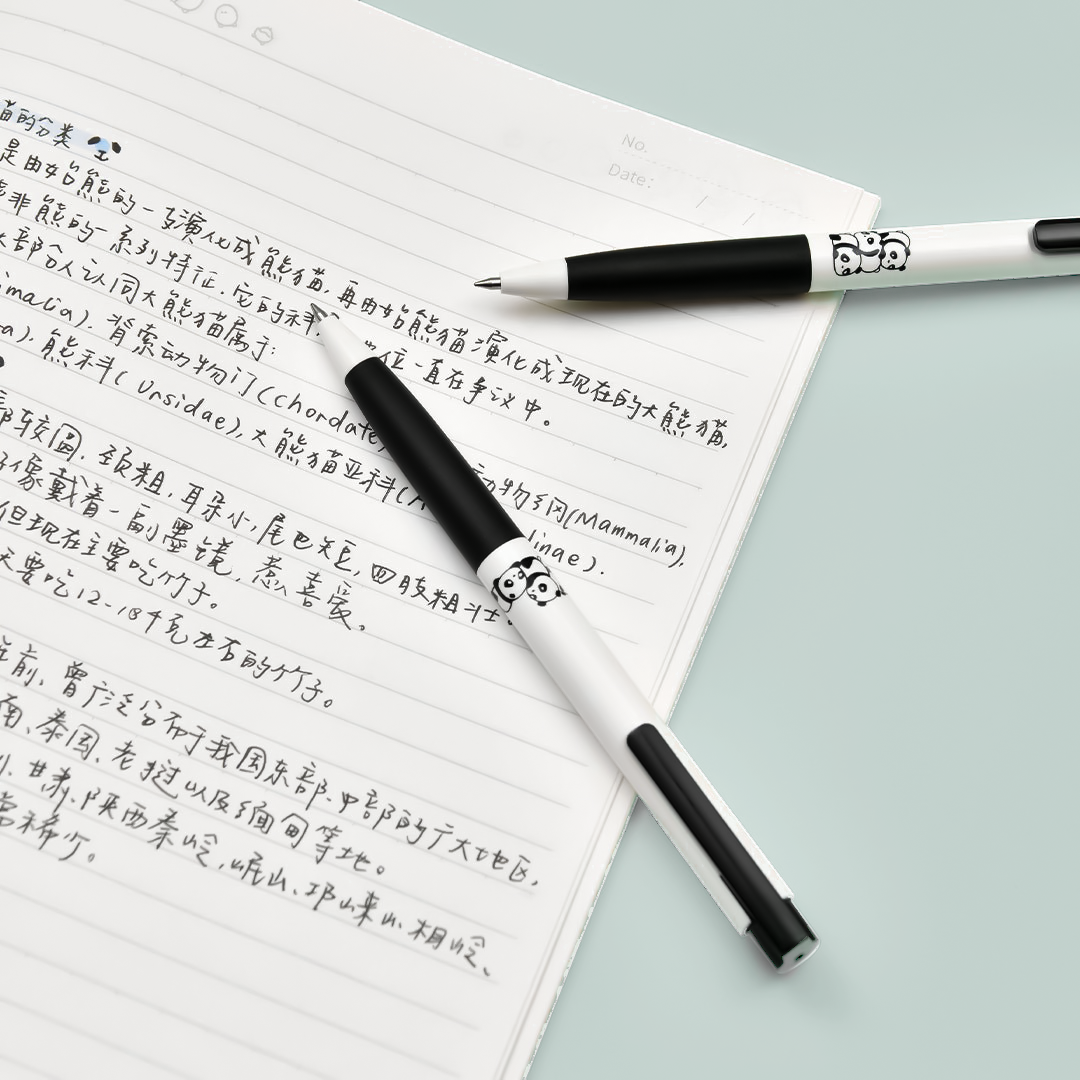 No.
Date: / /
猫的分类
是由始熊的一支演化成熊猫,再由始熊猫演化成现在的大熊猫,
非熊的一系列特征.它的科 位一直在争议中。
大部分人认同大熊猫属于:
malia).脊索动物门(Chordate 动物纲(Mammalia),
熊科(Ursidae),大熊猫亚科(A linae).
部较圆.颈粗.耳朵小,尾巴短,四肢粗壮。
好像戴着一副墨镜,惹喜爱。
但现在主要吃竹子。
天要吃12-18千克左右的竹子。
年前、曾广泛分布于我国东部.中部的广大地区,
南、泰国、老挝以及缅甸等地。
甘肃、陕西秦岭,岷山、邛崃山.相岭、
常稀少。